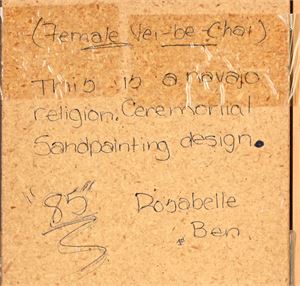 (Female Yei-be-Chai)
This is a navajo
religion. Ceremornial
Sandpainting design.
"85" Rosabelle
Ben